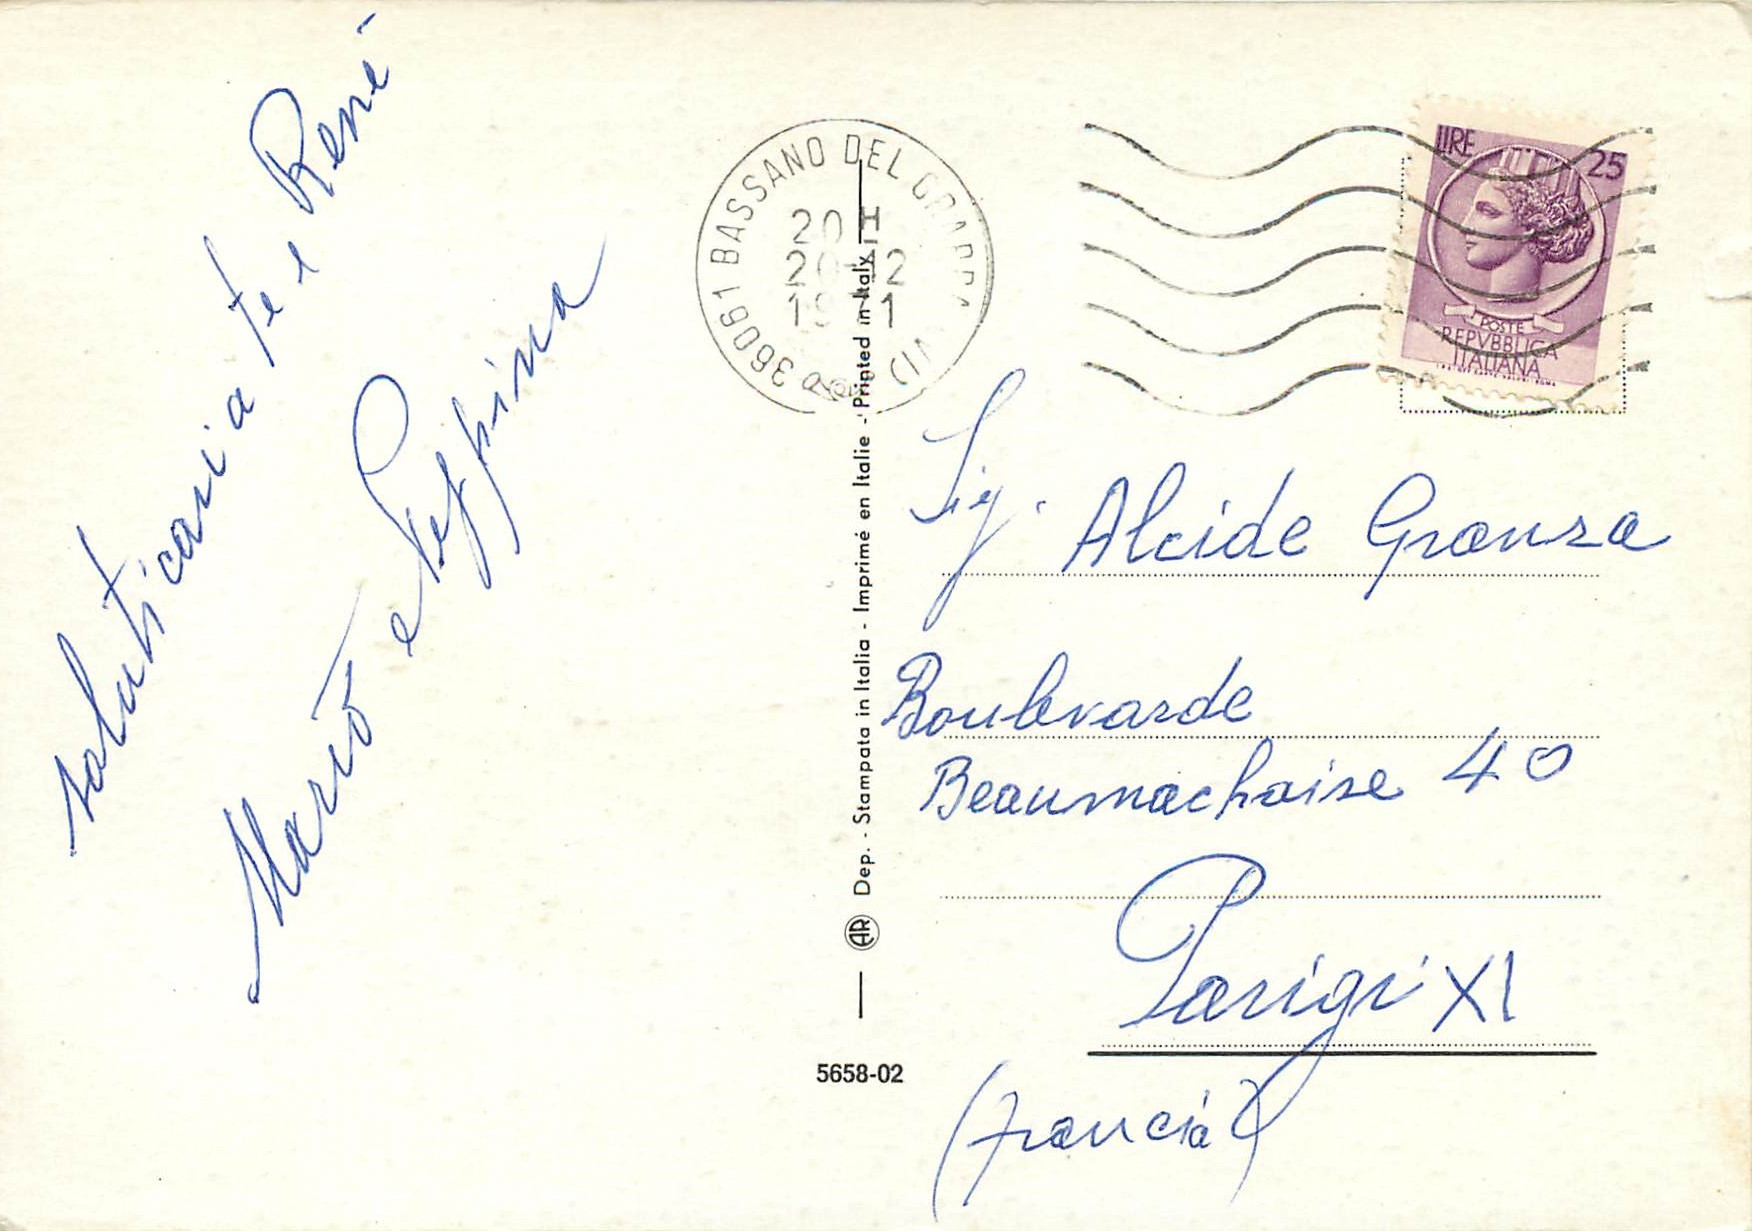 saluti cari a te e René
Mario e Peppina
36061 BASSANO DEL GRAPPA (VI)
20 H
20-12
19 1
LIRE 25
POSTE
REPVBBLICA
ITALIANA
AR Dep. - Stampata in Italia - Imprimé en Italie - Printed in Italy
5658-02
Sig. Alcide Gronza
Boulevarde
Beaumachaise 40
Parigi XI
(Francia)